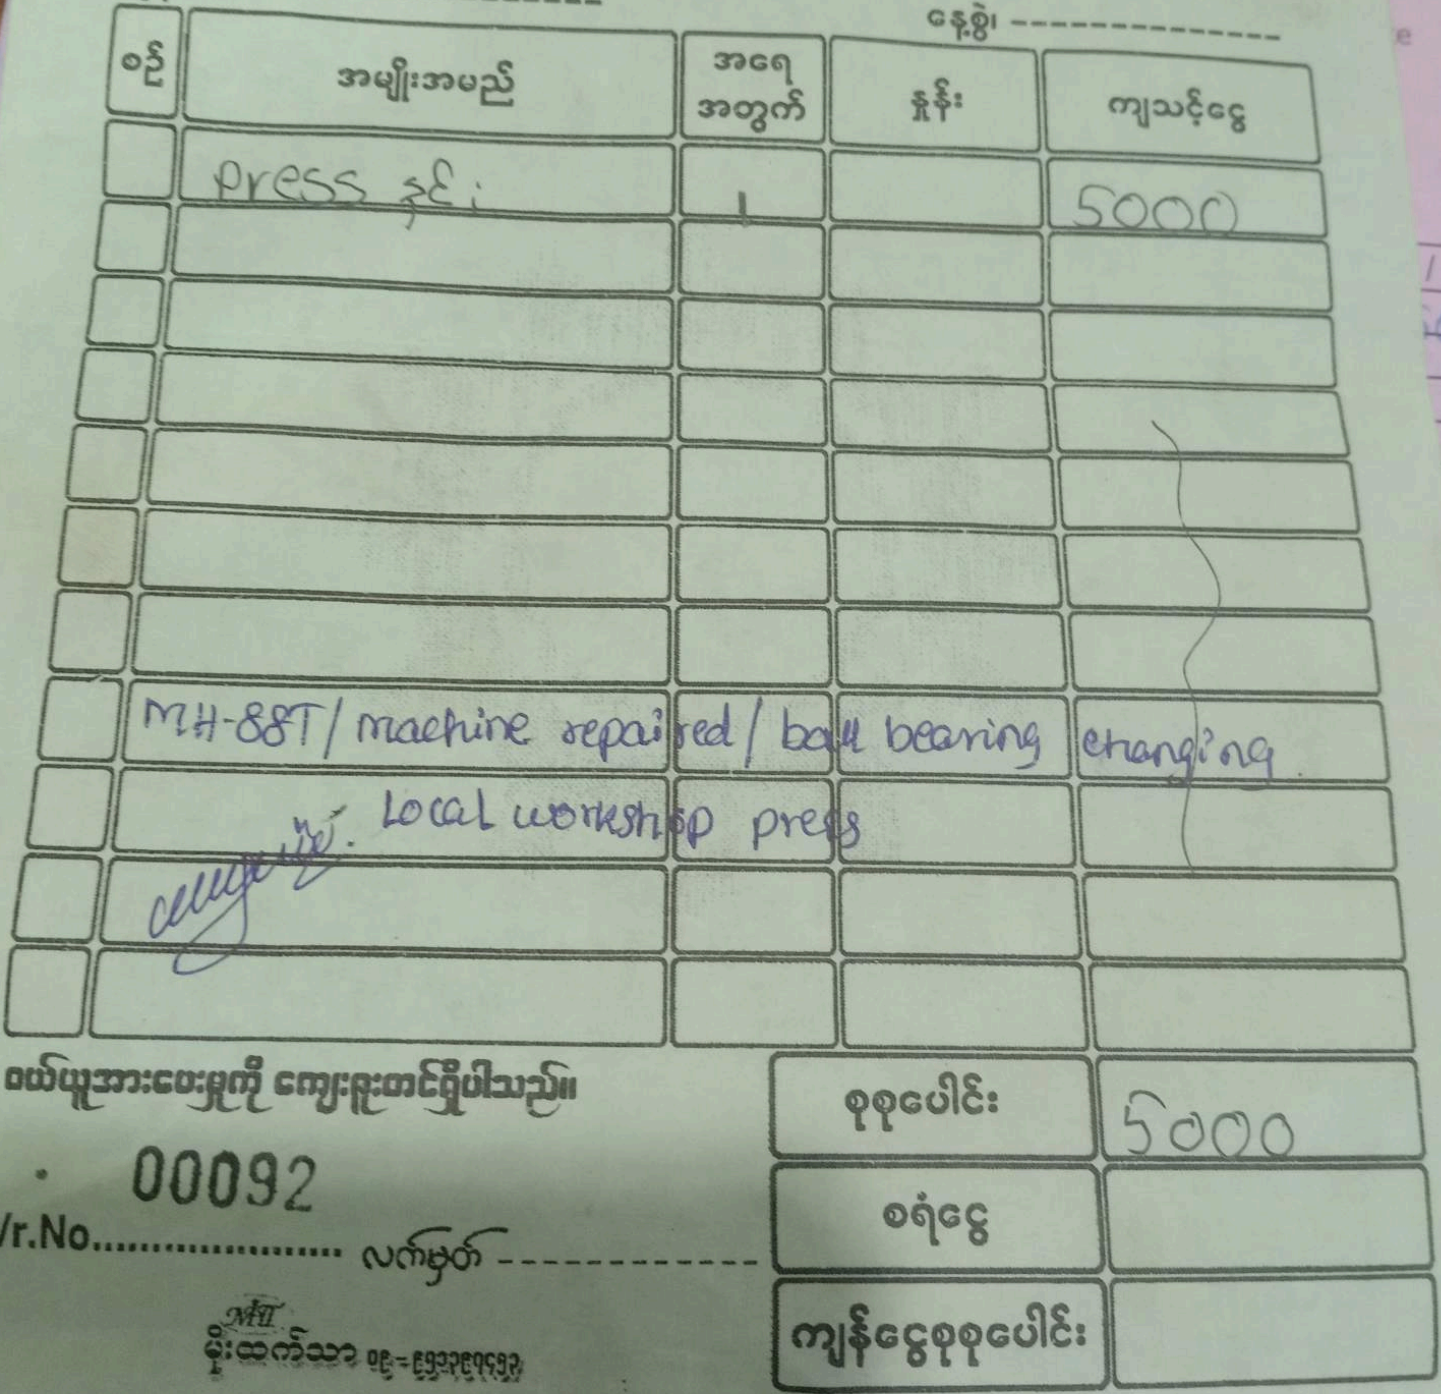 နေ့စွဲ၊ --------------
စဉ် အမျိုးအမည် အရေအတွက် နှုန်း ကျသင့်ငွေ
press နှင်း 1 5000
MH-88T/ machine repaired/ ball bearing changing.
Local workshop press
ဝယ်ယူအားပေးမှုကို ကျေးဇူးတင်ရှိပါသည်။
စုစုပေါင်း 5000
00092
စရံငွေ
Vr.No..................... လက်မှတ် ------------
ကျန်ငွေစုစုပေါင်း
MTT
မိုးထက်သာ